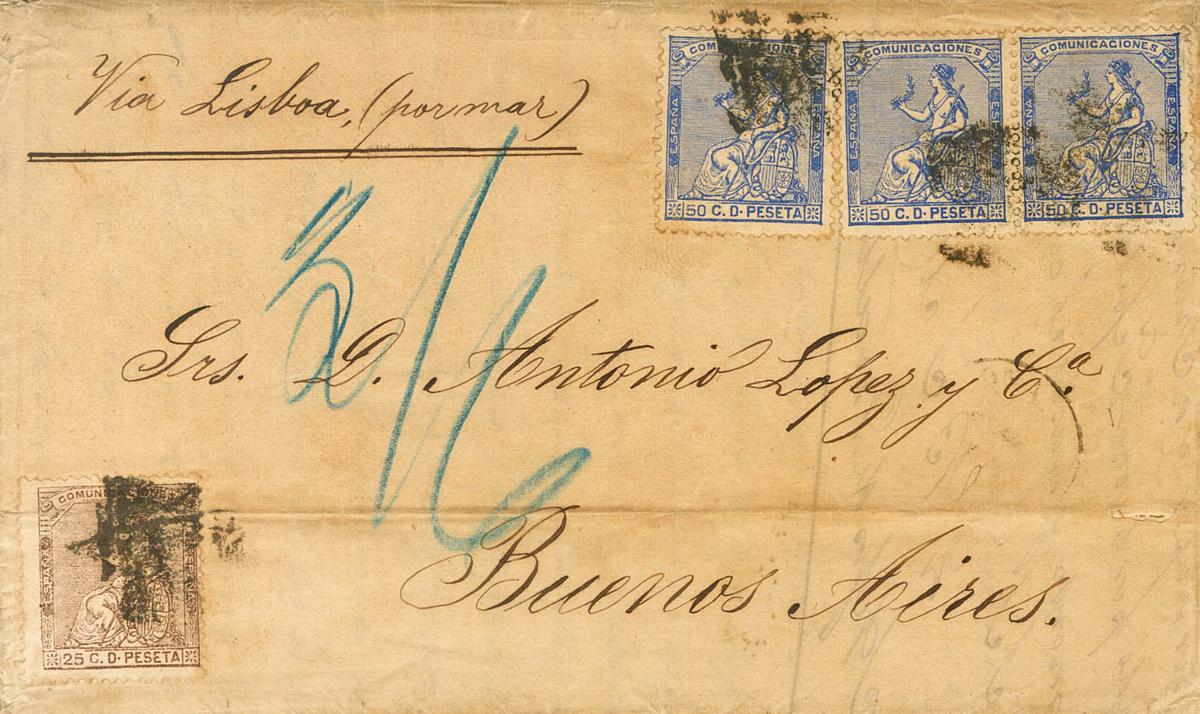 Via Lisboa, (por mar)
COMUNICACIONES
ESPAÑA
50 C. D. PESETA
COMUNICACIONES
ESPAÑA
ESPAÑA
50 C. D. PESETA
COMUNICACIONES
ESPAÑA
ESPAÑA
50 C. D. PESETA
Srs. D. Antonio Lopez y Cª
Buenos Aires.
COMUNICACIONES
ESPAÑA
25 C. D. PESETA